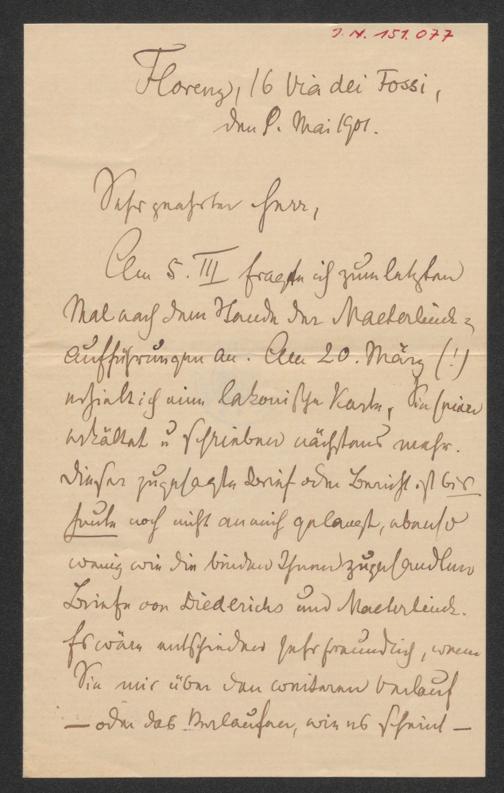 J. N. 151.077
Florenz, 16 Via dei Fossi,
den 8. Mai 1901.
Sehr geehrter Herr,
Am 5. III fragte ich zum letzten
Mal nach dem Stande der Maeterlinck-
aufführungen an. Am 20. März (!)
erhielt ich eine lakonische Karte, Sie seien
erkältet u schrieben nächstens mehr.
Dieser zugesagte Brief oder Bericht ist bis
heute noch nicht an mich gelangt, ebenso
wenig wie die beiden Ihnen zugesandten
Briefe von Diederichs und Maeterlinck.
Es wäre entschieden sehr freundlich, wenn
Sie mir über den weiteren Verlauf
— oder das Verlaufen, wie es scheint —